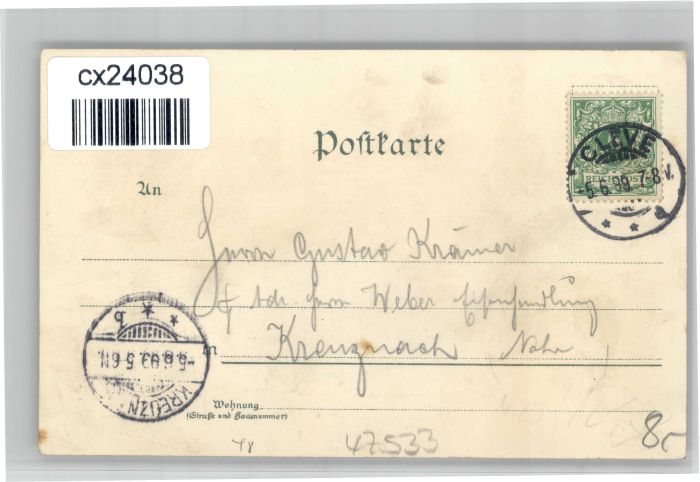 cx24038
Postkarte
REICHSPOST
CLEVE
5.6.99.7-8V.
a
An
Herrn Gustav Krämer
Adr. Herrn Weber Eisenhandlung
in Kreuznach (Nahe)
KREUZN
-5.6.99.5-6N.
b
Wohnung
(Straße und Hausnummer)
47533
8,-